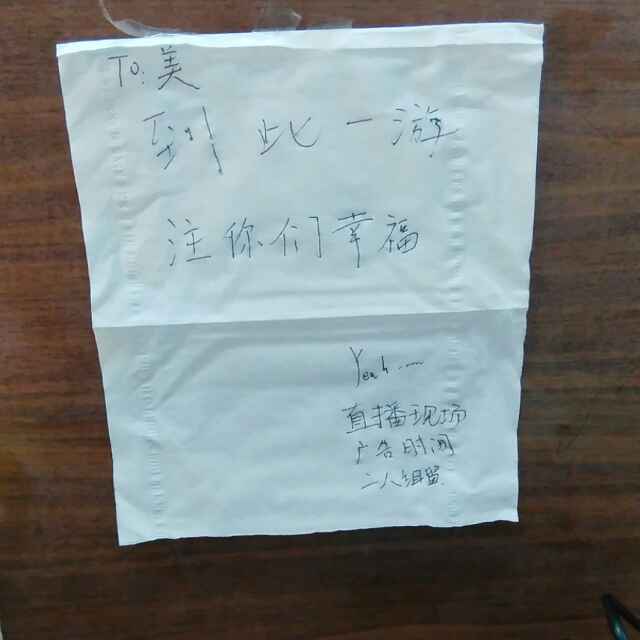 To: 美
到此一游
注你们幸福
Yeah……
直播现场
广告时间
二人组留